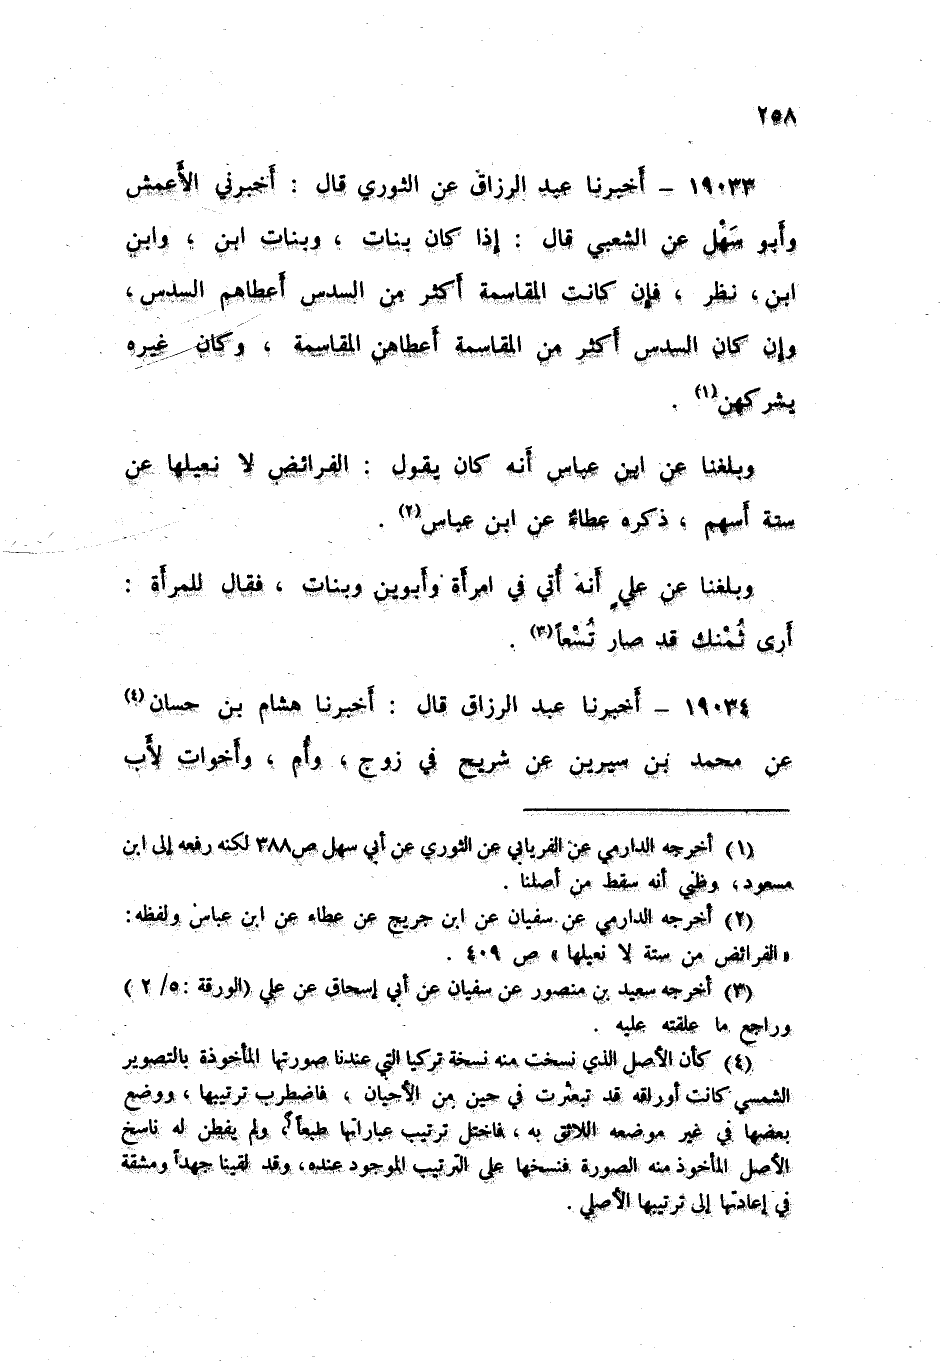 ٢٥٨
١٩٠٣٣ – أخبرنا عبد الرزاق عن الثوري قال : أخبرني الأعمش
وأبو سَهْل عن الشعبي قال : إذا كان بنات ، وبنات ابن ، وابن
ابن، نظر ، فإن كانت المقاسمة أكثر من السدس أعطاهم السدس،
وإن كان السدس أكثر من المقاسمة أعطاهن المقاسمة ، وكان غيره
يشركهن(١) .
وبلغنا عن ابن عباس أنه كان يقول : الفرائض لا نعيلها عن
ستة أسهم ، ذكره عطاءٌ عن ابن عباس(٢) .
وبلغنا عن عليٍ أنه أُتي في امرأة وأبوين وبنات ، فقال للمرأة :
أرى ثُمْنك قد صار تُسْعاً(٣) .
١٩٠٣٤ – أخبرنا عبد الرزاق قال : أخبرنا هشام بن حسان(٤)
عن محمد بن سيرين عن شريح في زوج ، وأُم ، وأخوات لأَب
(١) أخرجه الدارمي عن الفريابي عن الثوري عن أبي سهل ص٣٨٨ لكنه رفعه إلى ابن
مسعود، وظني أنه سقط من أصلنا .
(٢) أخرجه الدارمي عن سفيان عن ابن جريج عن عطاء عن ابن عباس ولفظه:
«الفرائض من ستة لا نعيلها» ص ٤٠٩ .
(٣) أخرجه سعيد بن منصور عن سفيان عن أبي إسحاق عن علي (الورقة :٥/ ٢ )
وراجع ما علقته عليه .
(٤) كأن الأصل الذي نسخت منه نسخة تركيا التي عندنا صورتها المأخوذة بالتصوير
الشمسي كانت أوراقه قد تبعثرت في حين من الأحيان ، فاضطرب ترتيبها ، ووضع
بعضها في غير موضعه اللائق به ، فاختل ترتيب عباراتها طبعاً، ولم يفطن له ناسخ
الأصل المأخوذ منه الصورة فنسخها على الترتيب الموجود عنده، وقد لقينا جهداً ومشقة
في إعادتها إلى ترتيبها الأصلي .